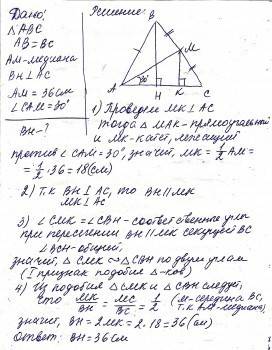 Дано:
△ABC
AB=BC
AM-медиана
BH⊥AC
AM=36см
∠CAM=30°
BH-?
Решение:
B
M
A
30°
H
K
C
1) Проведем MK⊥AC
тогда △MAK-прямоугольный
и MK-катет, лежащий
против ∠CAM=30°, значит, MK=1/2AM=
=1/2·36=18(см)
2) Т.к BH⊥AC, то BH∥MK
MK⊥AC
3) ∠CMK=∠CBH-соответственные углы
при пересечении BH∥MK секущей BC
∠BCH-общий,
значит, △CMK∼△CBH по двум углам
(I признак подобия △-ков)
4) Из подобия △CMK и △CBH следует,
что MK/BH=MC/BC=1/2 (M-середина BC,
т.к AM-медиана)
значит, BH=2MK=2·18=36(см)
Ответ: BH=36см